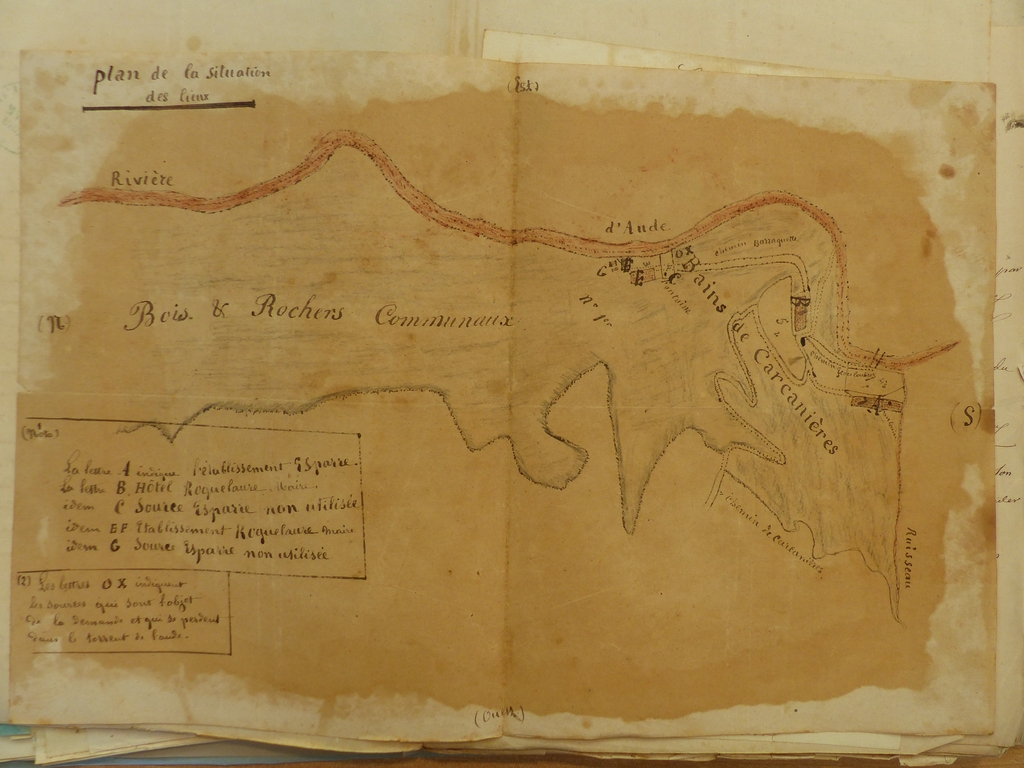 plan de la situation
des lieux
(Est)
Rivière
d'Aude
Chemin
OX
G
E
F
C
B
Bains
de Carcanières
n° 1er
(N)
Bois & Rochers Communaux
H
A
(S)
(Nota)
La lettre A indique l'établissement Esparre.
La lettre B. Hôtel Roquelaure. Maire.
idem C Source Esparre non utilisée
idem EF Etablissement Roquelaure maire
idem G Source Esparre non utilisée
(2) Les lettres OX indiquent
les sources qui sont l'objet
de la demande et qui se perdent
dans le torrent de l'aude.
chemin de Carcanières
Ruisseau
(Ouest)